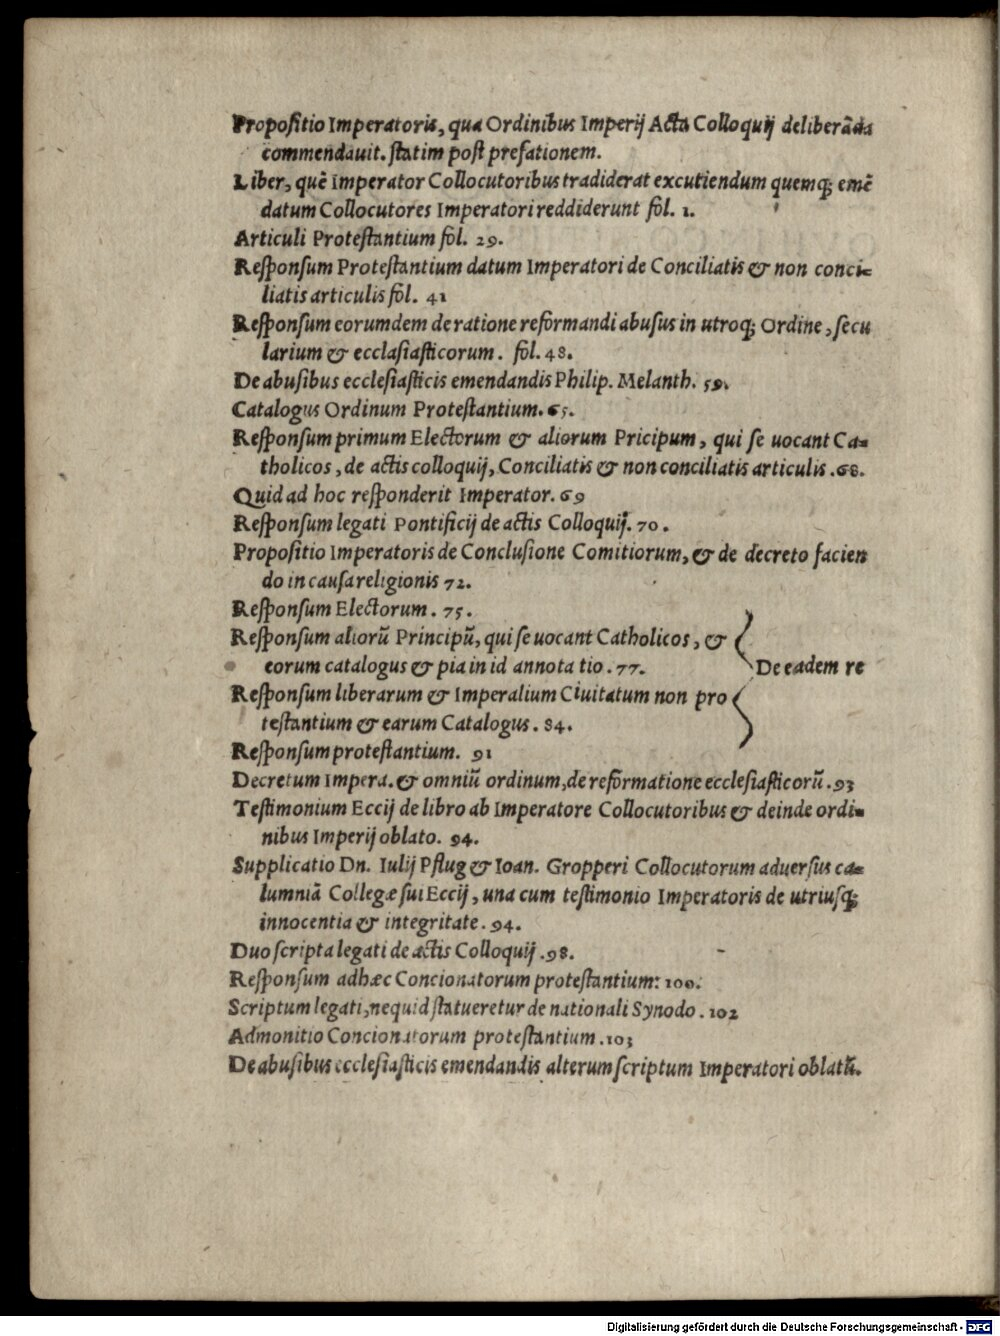 Propositio Imperatoris, qua Ordinibus Imperij Acta Colloquij deliberāda
commendauit. statim post prefationem.
Liber, quē Imperator Collocutoribus tradiderat excutiendum quemq; emē
datum Collocutores Imperatori reddiderunt fol. 1.
Articuli Protestantium fol. 29.
Responsum Protestantium datum Imperatori de Conciliatis & non conci-
liatis articulis fol. 41
Responsum eorumdem de ratione reformandi abusus in utroq; Ordine, secu
larium & ecclasiasticorum. fol. 48.
De abusibus ecclesiasticis emendandis Philip. Melanth. 59.
Catalogus Ordinum Protestantium. 65.
Responsum primum Electorum & aliorum Pricipum, qui se uocant Ca-
tholicos, de actis colloquij, Conciliatis & non conciliatis articulis. 68.
Quid ad hoc responderit Imperator. 69
Responsum legati Pontificij de actis Colloquij. 70.
Propositio Imperatoris de Conclusione Comitiorum, & de decreto facien
do in causa religionis 72.
Responsum Electorum. 75.
Responsum aliorū Principū, qui se uocant Catholicos, &
eorum catalogus & pia in id annota tio. 77.
De eadem re
Responsum liberarum & Imperalium Ciuitatum non pro
testantium & earum Catalogus. 84.
Responsum protestantium. 91
Decretum Impera. & omniū ordinum, de reformatione ecclesiasticorū. 93
Testimonium Eccij de libro ab Imperatore Collocutoribus & deinde ordi-
nibus Imperij oblato. 94.
Supplicatio Dn. Iulij Pflug & Ioan. Gropperi Collocutorum aduersus ca-
lumniā Collegæ sui Eccij, una cum testimonio Imperatoris de utriusq;
innocentia & integritate. 94.
Duo scripta legati de actis Colloquij. 98.
Responsum adhæc Concionatorum protestantium: 100.
Scriptum legati, nequid statueretur de nationali Synodo. 102
Admonitio Concionatorum protestantium. 103
De abusibus ecclesiasticis emendandis alterum scriptum Imperatori oblatū.
Digitalisierung gefördert durch die Deutsche Forschungsgemeinschaft - DFG